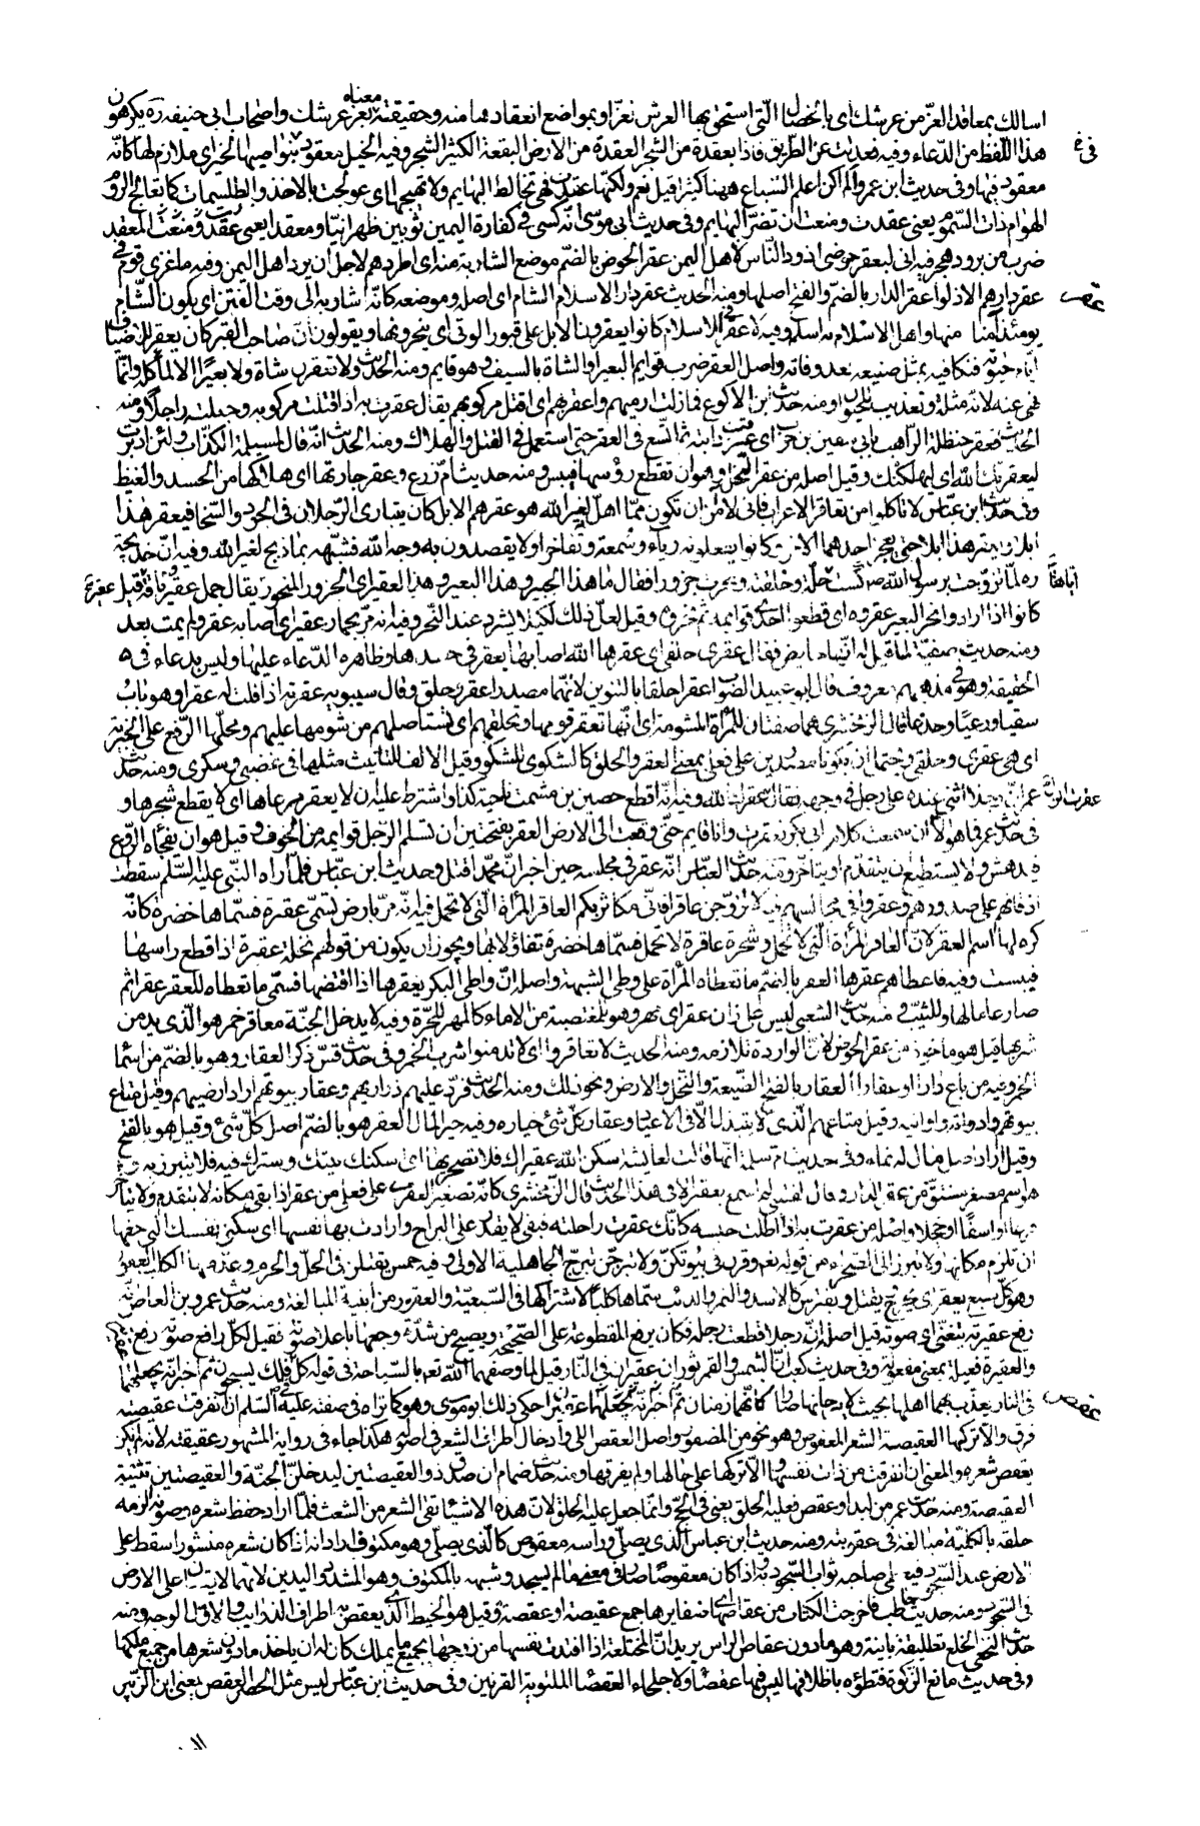 اسالك بمعاقد العز من عرشك اى بالخصال التى استحق بها العرش العز او بمواضع انعقادها منه وحقيقة معناه بعز عرشك واصحاب ابى حنيفه ره يكرهون
هذا اللفظ من الدعاء وفيه فعدلت عن الطريق فاذا بعقدة من الشجر العقدة من الارض البقعة الكثيرة الشجر وفيه الخيل معقود بنواصيها الخير اى ملازم لها كانه
معقود فيها وفى حديث ابن عمرو الم اكن اعلم السباع ههنا كثيرا قيل نعم ولكنها عقدت فهى تخالط البهايم ولا تهيجها اى عولجت بالاخذ والطلسمات كما تعالج الروم
الهوام ذات السموم يعنى عقدت ومنعت ان تضر البهايم وفى حديث ابى موسى انه كسى فى كفارة اليمين ثوبين ظهرانيا ومعقدا يعنى المعقد
ضرب من برود هجر فيه انى لبعقر حوضى اذود الناس لاهل اليمن عقر الحوض بالضم موضع الشاربة منه اى اطردهم لاجل ان يرد اهل اليمن وفيه ما غزى قوم فى
عقر دارهم الا ذلوا عقر الدار بالضم والفتح اصلها ومنه الحديث عقر دار الاسلام الشام اى اصله وموضعه كانه اشار به الى وقت الفتن اى يكون الشام
يومئذ آمنا منها واهل الاسلام به اسلم وفيه لا عقر فى الاسلام كانوا يعقرون الابل على قبور الموتى اى ينحرونها ويقولون ان صاحب القبر كان يعقر للاضياف
ايام حيوته فنكافيه بمثل صنيعه بعد وفاته واصل العقر ضرب قوايم البعير او الشاة بالسيف وهو قايم ومنه الحديث ولا تعقرن شاة ولا بعيرا الا لماكلة وانما
نهى عنه لانه مثلة وتعذيب للحيوان ومنه حديث ابن الاكوع فما زلت ارميهم واعقر بهم اى اقتل مركوبهم يقال عقرت به اذا قتلت مركوبه وجعلته راجلا ومنه
الحديث فعقر حنظلة الراهب بابى سفين بن حرب اى عرقب دابته ثم اتسع فى العقر حتى استعمل فى القتل والهلاك ومنه الحديث انه قال لمسيلمة الكذاب ولئن ادبرت
ليعقرنك الله اى ليهلكنك وقيل اصله من عقر النخل وهو ان تقطع رؤسها فتيبس ومنه حديث ام زرع وعقر جارتها اى هلاكها من الحسد والغيظ
وفى حديث ابن عباس لا تاكلوا من تعاقر الاعراب فانى لا آمن ان تكون مما اهل لغير الله هو عقرهم الابل كان يتبارى الرجلان فى الجود والسخا فيعقر هذا
ابلا ويعقر هذا ابلا حتى يعجز احدهما الاخر كانوا يفعلونه رياء وسمعة وتفاخرا ولا يقصدون به وجه الله فشبهه بما ذبح لغير الله وفيه ان خديجة
ره لما تزوجت برسول الله ص كست اباها حلة وخلقته ونحرت جزورا فقال ما هذا الحبير وهذا العبير وهذا العقير اى الجزور المنحور يقال جمل عقير وناقة عقير قيل
كانوا اذا ارادوا نحر البعير عقروه اى قطعوا احدى قوايمه ثم نحروه وقيل يفعل ذلك لكيلا يشرد عند النحر وفيه انه مر بحمار عقير اى اصابه عقر ولم يمت بعد
ومنه حديث صفية لما قيل له انها حايض فقال عقرى حلقى اى عقرها الله اصابها بعقر فى جسدها وظاهره الدعاء عليها وليس بدعاء فى
الحقيقة وهو فى مذهبهم معروف قال ابو عبيد الصواب عقرا حلقا بالتنوين لانهما مصدرا عقر وحلق وقال سيبويه عقرته اذا قلت له عقرا وهو باب
سقيا ورعيا وجدعا قال الزمخشرى هما صفتان للمراة المشومة اى انها تعقر قومها وتحلقهم اى تستاصلهم من شومها عليهم ومحلها الرفع على الخبرية
اى هى عقرى وحلقى ويحتمل ان يكونا مصدرين على فعلى بمعنى العقر والحلق كالشكوى للشكو وقيل الالف للتانيث مثلها فى غضبى وسكرى ومنه حديث
عمر ان رجلا اثنى عنده على رجل فى وجهه فقال عقرت الرجل عقرك الله وفيه انه اقطع حصين بن مشمت ناحية كذا واشترط عليه ان لا يعقر مرعاها اى لا يقطع شجرها و
فى حديث عمر فما هو الا ان سمعت كلام ابى بكر فعقرت وانا قايم حتى وقعت الى الارض العقر بفتحتين ان تسلم الرجل قوايمه من الخوف وقيل هو ان يفجأه الروع
فيدهش ولا يستطيع ان يتقدم او يتاخر ومنه حديث العباس انه عقر فى مجلسه حين اخبر ان محمدا قتل وحديث ابن عباس فلما راه النبى عليه السلم سقطت
اذقانهم على صدورهم وعقروا فى مجالسهم وفيه لا تزوجن عاقرا فانى مكاثر بكم العاقر المراة التى لا تحمل فيه انه مر بارض تسمى عقرة فسماها خضرة كانه
كره لها اسم العقر لان العاقر المراة التى لا تحمل وشجرة عاقرة لا تحمل فسماها خضرة تفاؤلا بها ويجوز ان يكون من قولهم نخلة عقرة اذا قطع راسها
فيبست وفيه فاعطاهم عقرها العقر بالضم ما تعطاه المراة على وطئ الشبهة واصله ان واطئ البكر يعقرها اذا افتضها فسمى ما تعطاه للعقر عقرا ثم
صار عاما لها وللثيب ومنه حديث الشعبى ليس على زان عقر اى مهر وهو للمغتصبة من الاماء كالمهر للحرة وفيه لا يدخل الجنة معاقر خمر هو الذى يدمن
شربها قيل هو ماخوذ من عقر الحوض لان الواردة تلازمه ومنه الحديث لا تعاقروا اى لا تدمنوا شرب الخمر وفى حديث قس ذكر العقار وهو بالضم من اسما
الخمر وفيه من باع دارا او عقارا العقار بالفتح الضيعة والنخل والارض ونحو ذلك ومنه الحديث فرد عليهم ذراريهم وعقار بيوتهم اراد ارضيهم وقيل متاع
بيوتهم وادواته واوانيه وقيل متاعهم الذى لا يبتذل الا فى الاعياد وعقار كل شئ خياره وفيه خير المال العقر هو بالضم اصل كل شئ وقيل هو بالفتح
وقيل اراد اصل مال له نماء وفى حديث ام سلمة انها قالت لعايشة سكن الله عقيراك فلا تصحريها اى اسكنك بيتك وسترك فيه فلا تبرزيه
هو اسم مصغر مشتق من عقر الدار وقال القتيبى لم اسمع بعقيرا الا فى هذا الحديث قال الزمخشرى كانه تصغير العقرى على فعلى من عقر اذا بقى مكانه لا يتقدم ولا يتاخر
فزعا او اسفا او خجلا واصله من عقرت به اذا اطلت حبسه كانك عقرت راحلته فبقى لا يقدر على البراح وارادت بها نفسها اى سكنى نفسك التى حقها
ان تلزم مكانها ولا تبرز الى الصحراء من قوله تعم وقرن فى بيوتكن ولا تبرجن تبرج الجاهلية الاولى وفيه خمس يقتلن فى الحل والحرم وعد منها الكلب العقور
وهو كل سبع يعقر اى يجرح ويقتل ويفترس كالاسد والنمر والذئب سماها كلبا لاشتراكها فى السبعية والعقور من ابنية المبالغة ومنه حديث عمرو بن العاص انه
رفع عقيرته يتغنى اى صوته قيل اصله ان رجلا قطعت رجله فكان يرفع المقطوعة على الصحيحة ويصيح من شدة وجعها باعلا صوته فقيل لكل رافع صوته رفع عقيرته
والعقيرة فعيلة بمعنى مفعولة وفى حديث كعب ان الشمس والقمر ثوران عقيران فى النار قيل لما وصفهما الله تعم بالسباحة فى قوله كل فى فلك يسبحون ثم اخبر انه يجعلهما
فى النار يعذب بهما اهلها بحيث لا يبرحانها صارا كانهما زمنان عقيران حكى ذلك ابو موسى وهو كما تراه فى صفته عليه السلم ان انفرقت عقيصته
فرق والا تركها العقيصة الشعر المعقوص وهو نحو من المضفور واصل العقص اللى وادخال اطراف الشعر فى اصوله هكذا جاء فى رواية المشهور عقيقته لانه لم يكن
يعقص شعره والمعنى ان انفرقت من ذات نفسها والا تركها على حالها ولم يفرقها ومنه حديث ضمام ان صدق ذو العقيصتين ليدخلن الجنة والعقيصتين تثنية
العقيصة ومنه حديث عمر من لبد او عقص فعليه الحلق يعنى فى الحج وانما جعل عليه الحلق لان هذه الاشيا تقى الشعر من الشعث فلما اراد حفظ شعره وصونه الزمه
حلقه بالكلية مبالغة فى عقوبته ومنه حديث ابن عباس الذى يصلى وراسه معقوص كالذى يصلى وهو مكتوف اراد انه اذا كان شعره منشورا سقط على
الارض عند السجود فيعطى صاحبه ثواب السجود به واذا كان معقوصا صار فى معنى ما لم يسجد وشبهه بالمكتوف وهو المشدود اليدين لانهما لا يقعان على الارض
فى السجود ومنه حديث حاطب فاخرجت الكتاب من عقاصها اى ضفايرها جمع عقيصة او عقصة وقيل هو الخيط الذى يعقص به اطراف الذوايب والاول الوجه ومنه
حديث النخعى الخلع تطليقة باينة وهو ما دون عقاص الراس يريد ان المختلعة اذا افتدت نفسها من زوجها بجميع ما يملك كان له ان ياخذ ما دون شعرها من جميع ملكها
وفى حديث مانع الزكوة فتطؤه باظلافها ليس فيها عقصا ولا جلحاء العقصا الملتوية القرنين وفى حديث ابن عباس ليس مثل الحصر العقص يعنى ابن الزبير